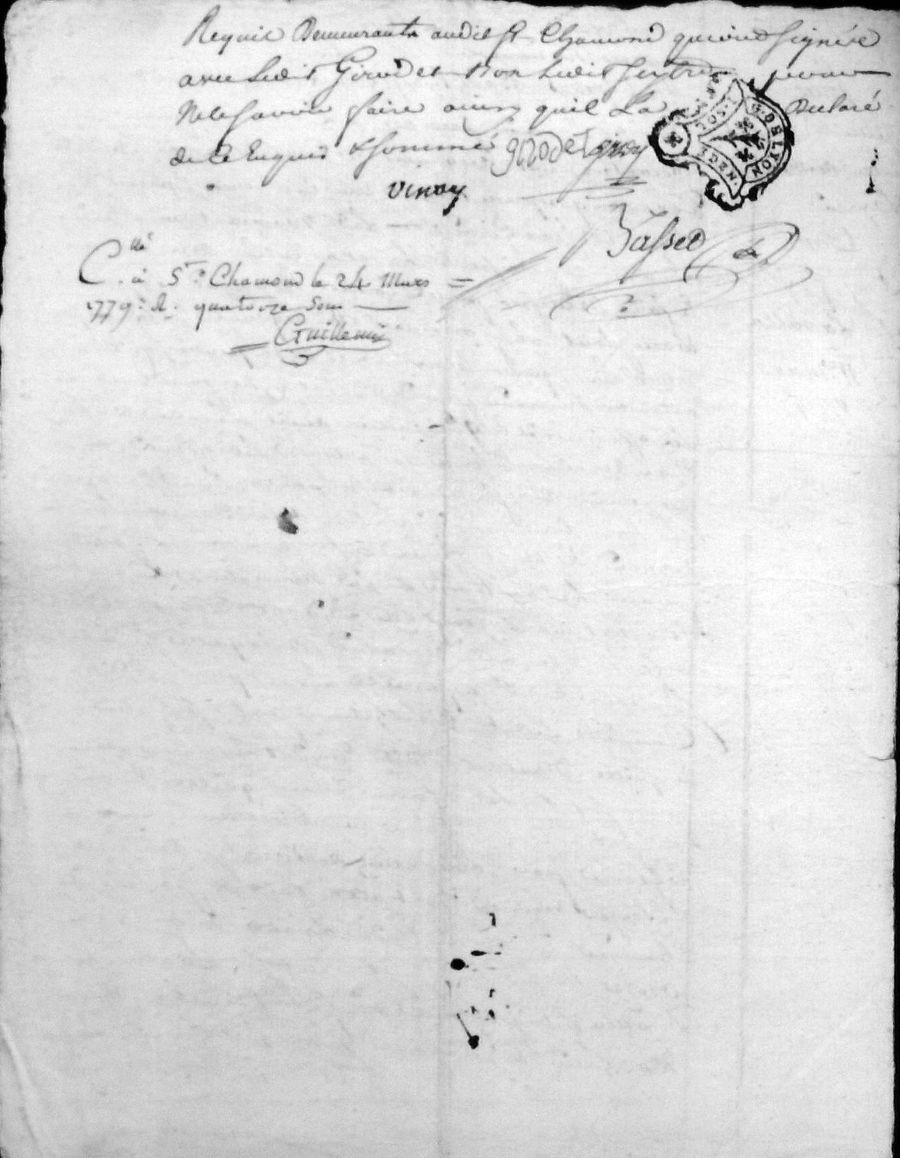 Requis Demeurants audit St Chamond qui ont signéz
avec Ledit Girodet Non Ledit pour
Ne le scavoir faire ainsy quil La Declaré
de ce Enquis & sommé girodet
vinoy
Basset
Clle à St Chamond le 24 Mars
1779: R. quatorze sous
Guillemin
G. DE LYON